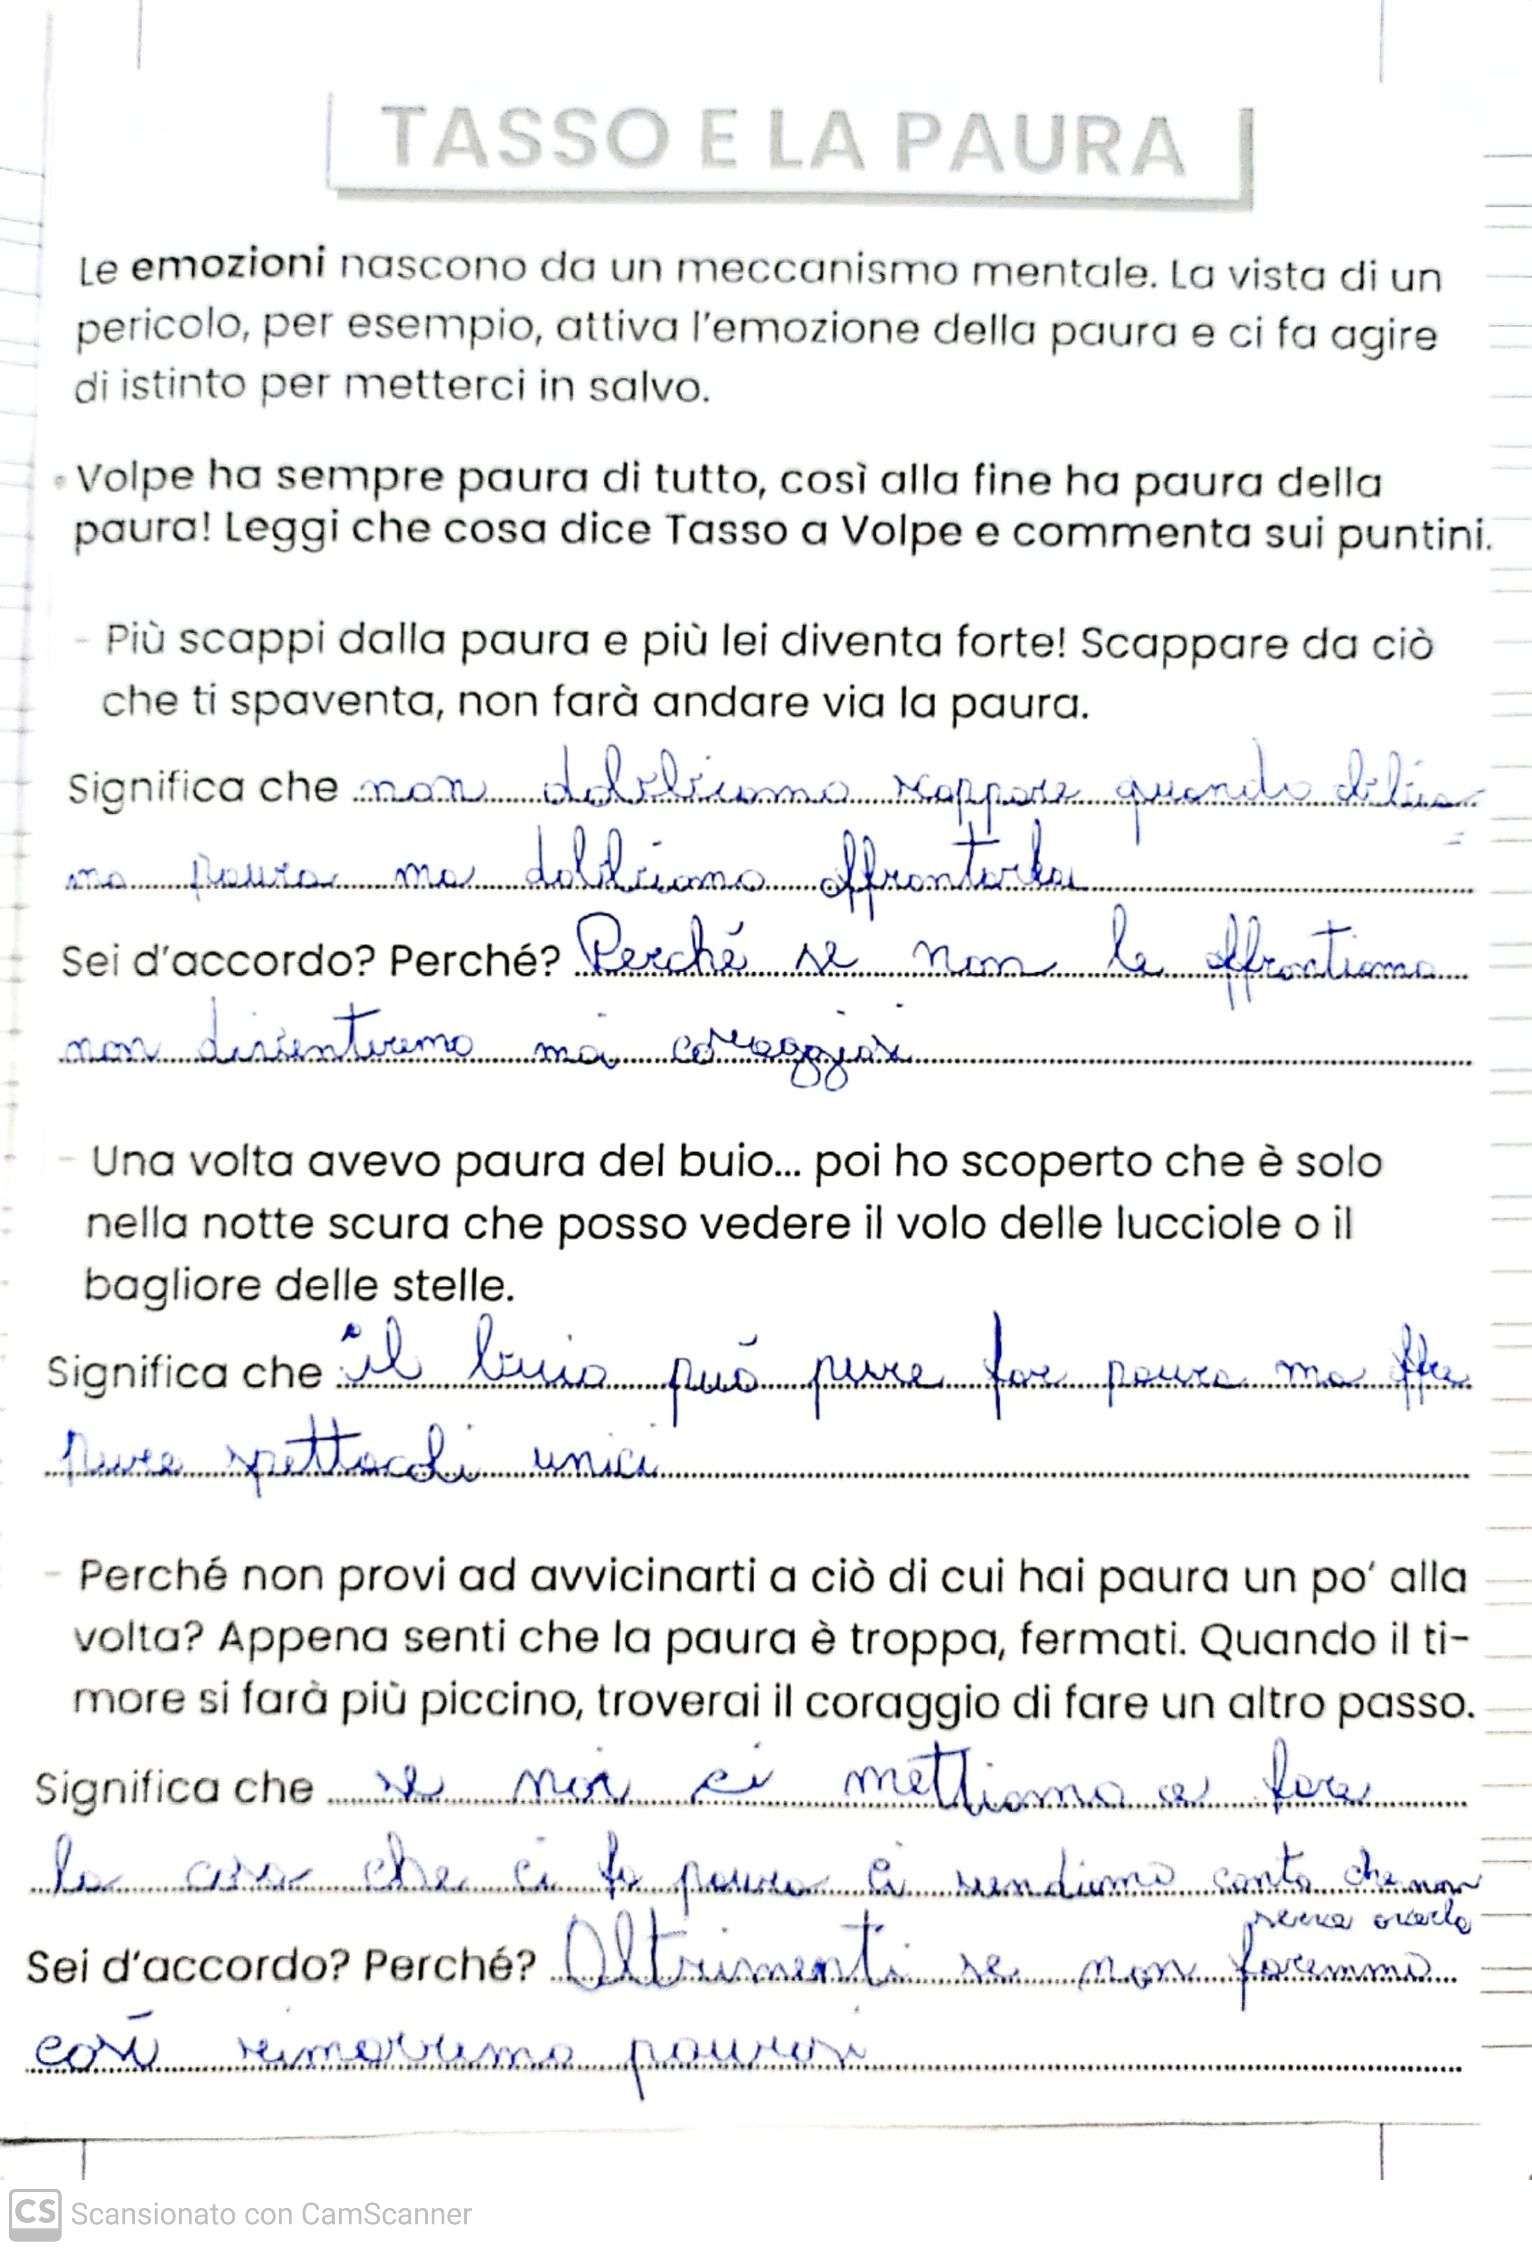 TASSO E LA PAURA
Le emozioni nascono da un meccanismo mentale. La vista di un
pericolo, per esempio, attiva l'emozione della paura e ci fa agire
di istinto per metterci in salvo.
Volpe ha sempre paura di tutto, così alla fine ha paura della
paura! Leggi che cosa dice Tasso a Volpe e commenta sui puntini.
- Più scappi dalla paura e più lei diventa forte! Scappare da ciò
che ti spaventa, non farà andare via la paura.
Significa che non dobbiamo scappare quando abbia=
mo paura ma dobbiamo affrontarla
Sei d'accordo? Perché? Perché se non le affrontiamo
non diventeremo mai coraggiosi
- Una volta avevo paura del buio... poi ho scoperto che è solo
nella notte scura che posso vedere il volo delle lucciole o il
bagliore delle stelle.
Significa che il buio può pure far paura ma offre
pure spettacoli unici
- Perché non provi ad avvicinarti a ciò di cui hai paura un po' alla
volta? Appena senti che la paura è troppa, fermati. Quando il ti-
more si farà più piccino, troverai il coraggio di fare un altro passo.
Significa che se noi ci mettiamo a fare
la cosa che ci fa paura ci rendiamo conto che non
Sei d'accordo? Perché? Altrimenti se non faremmo
così rimarremo paurosi
CS Scansionato con CamScanner